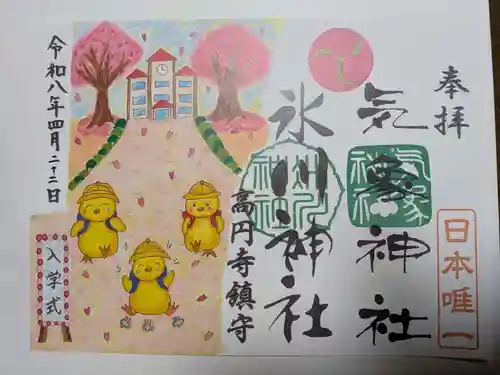 奉拝
日本唯一
気象神社
氷川神社
高円寺鎮守
令和八年四月二十二日
入学式